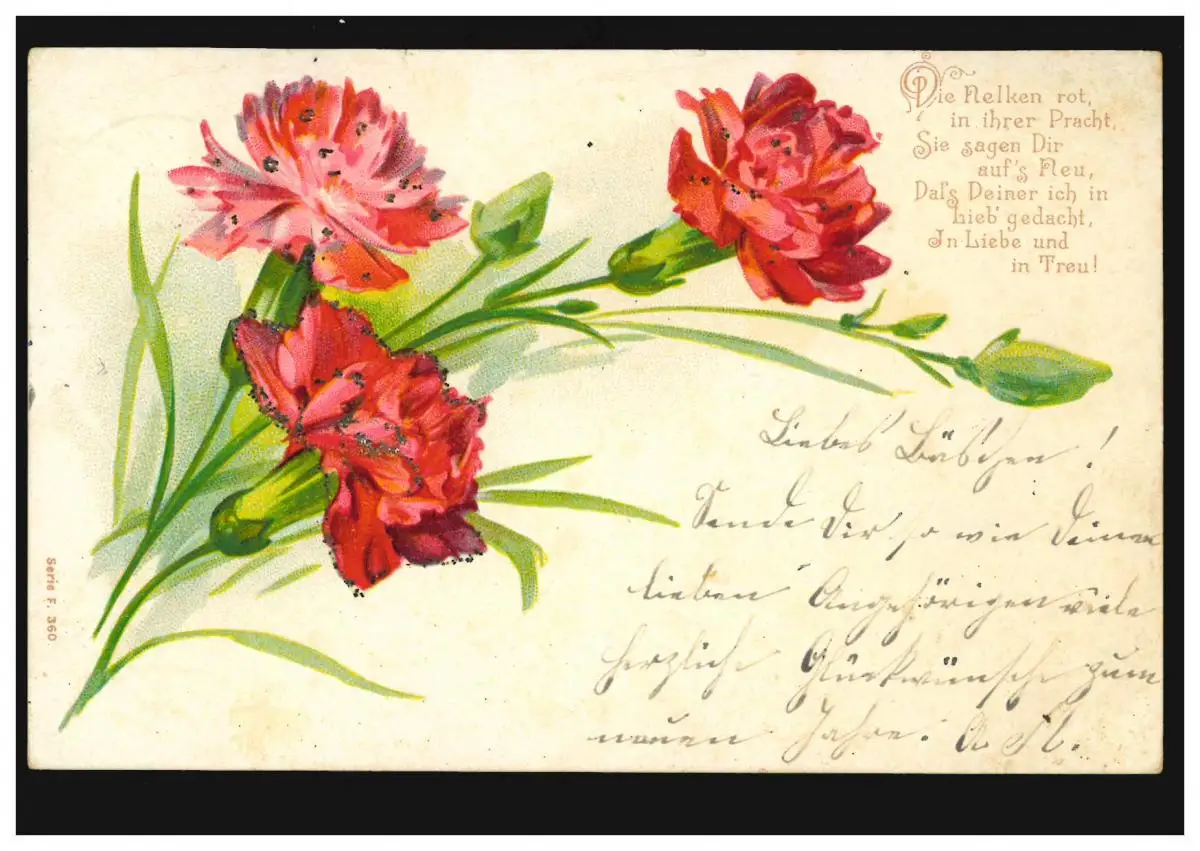 Die Nelken rot,
in ihrer Pracht,
Sie sagen Dir
auf's Neu,
Daſs Deiner ich in
Lieb' gedacht,
In Liebe und
in Treu!
Liebes Bäschen!
Sende Dir so wie Deinen
lieben Angehörigen viele
herzliche Glückwünsche zum
neuen Jahre.
Serie F. 360